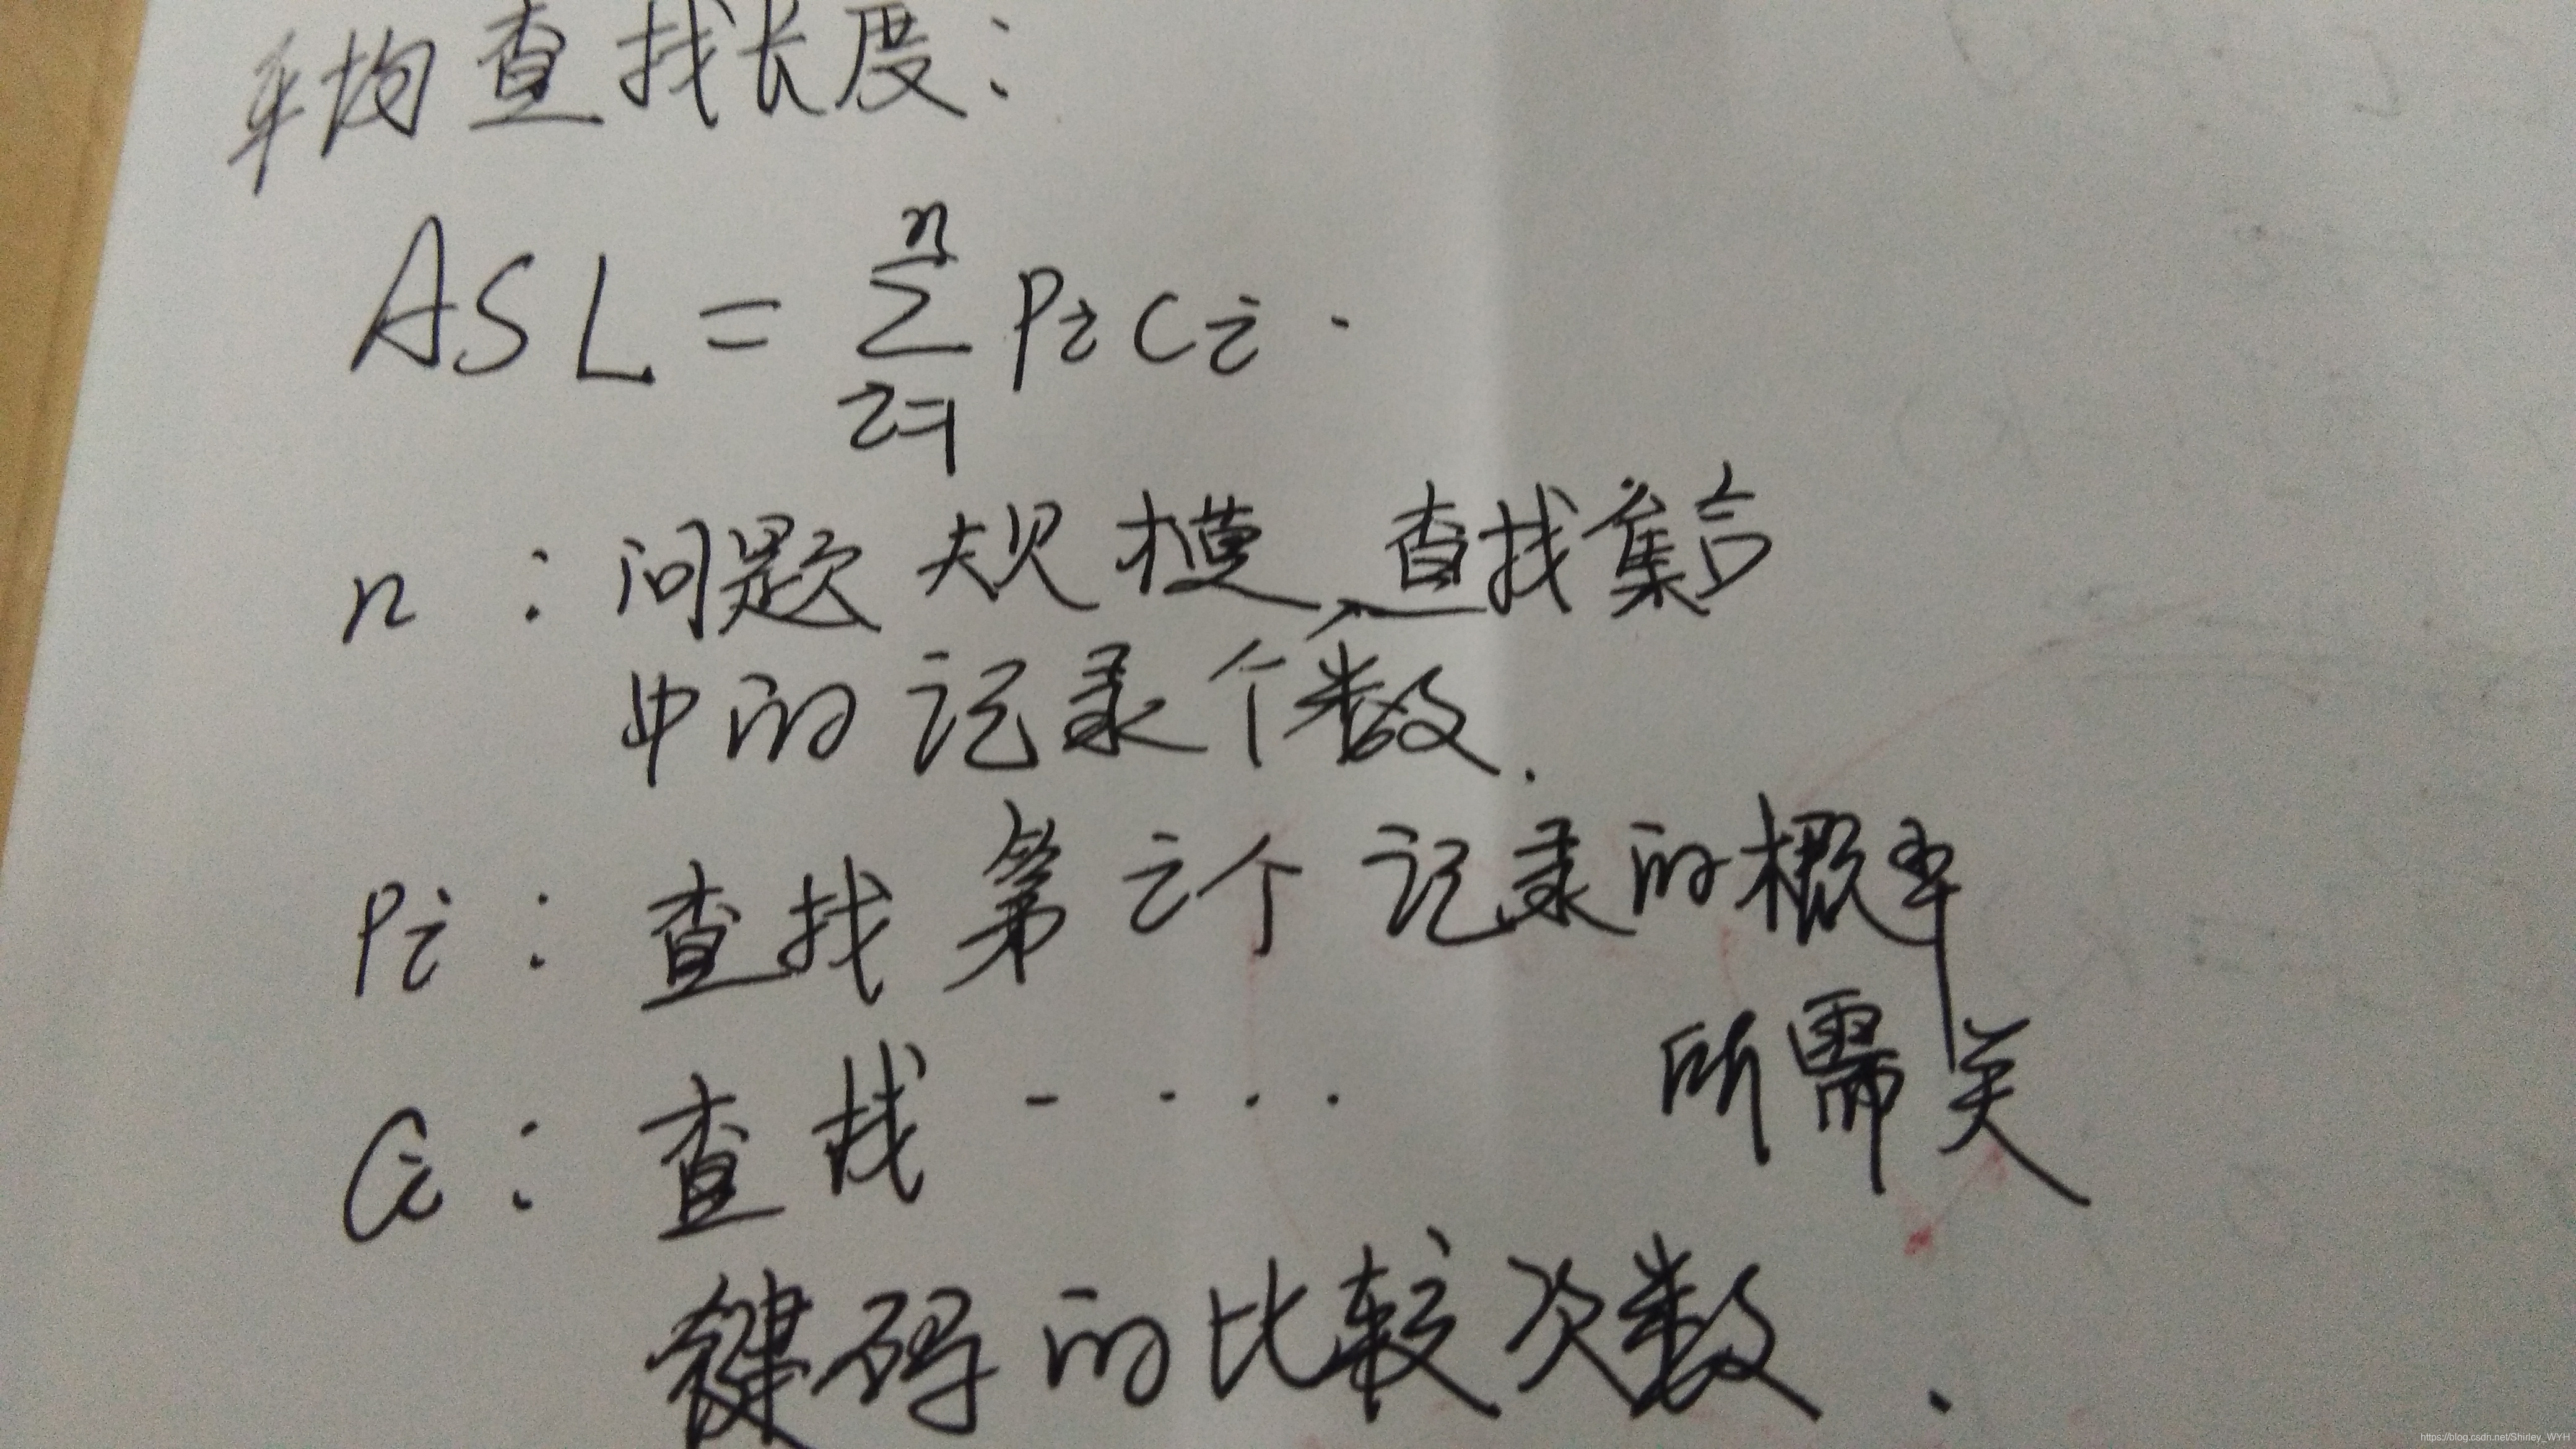 平均查找长度:
ASL = \sum_{i=1}^{n} Pi Ci .
n : 问题规模,查找集合
中的记录个数.
Pi : 查找第i个记录的概率
Ci : 查找 - . . . 所需关
键码的比较次数 .
https://blog.csdn.net/Shirley_WYH